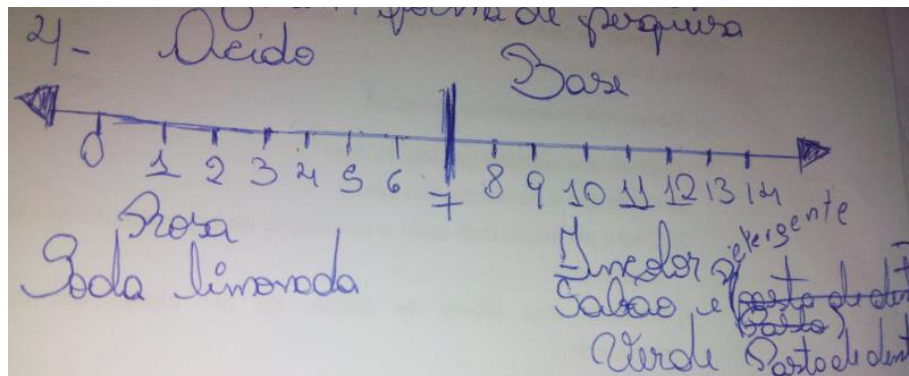 forma de pesquisa
4- Ácido Base
0 1 2 3 4 5 6 7 8 9 10 11 12 13 14
Rosa
Soda limonada
Incolor detergente
Sabão e (pasta de dent
(Pasta)
Verde Pasta de dent